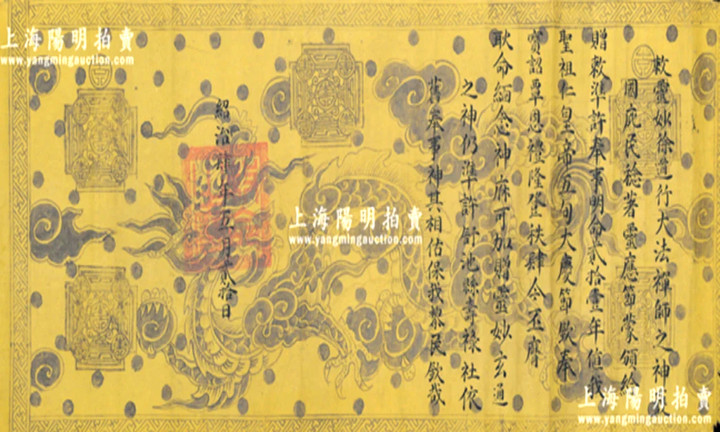 敕靈妙徐道行大法禪師之神
國庇民稔著靈應節蒙頒給
贈敕準許奉事明命貳拾壹年值我
聖祖仁皇帝五旬大慶節欽奉
寶詔覃恩禮隆登秩肆今丕膺
耿命緬念神庥可加贈靈妙玄通
之神仍準許 池縣壽祿社依
舊奉事神其相佑保我黎民欽哉
紹治 年五月貳拾日
上海陽明拍賣
www.yangmingauction.com
上海陽明拍賣
www.yangmingauction.com
上海陽明拍賣
www.yangmingauction.com
上海陽明拍賣
www.yangmingauction.com